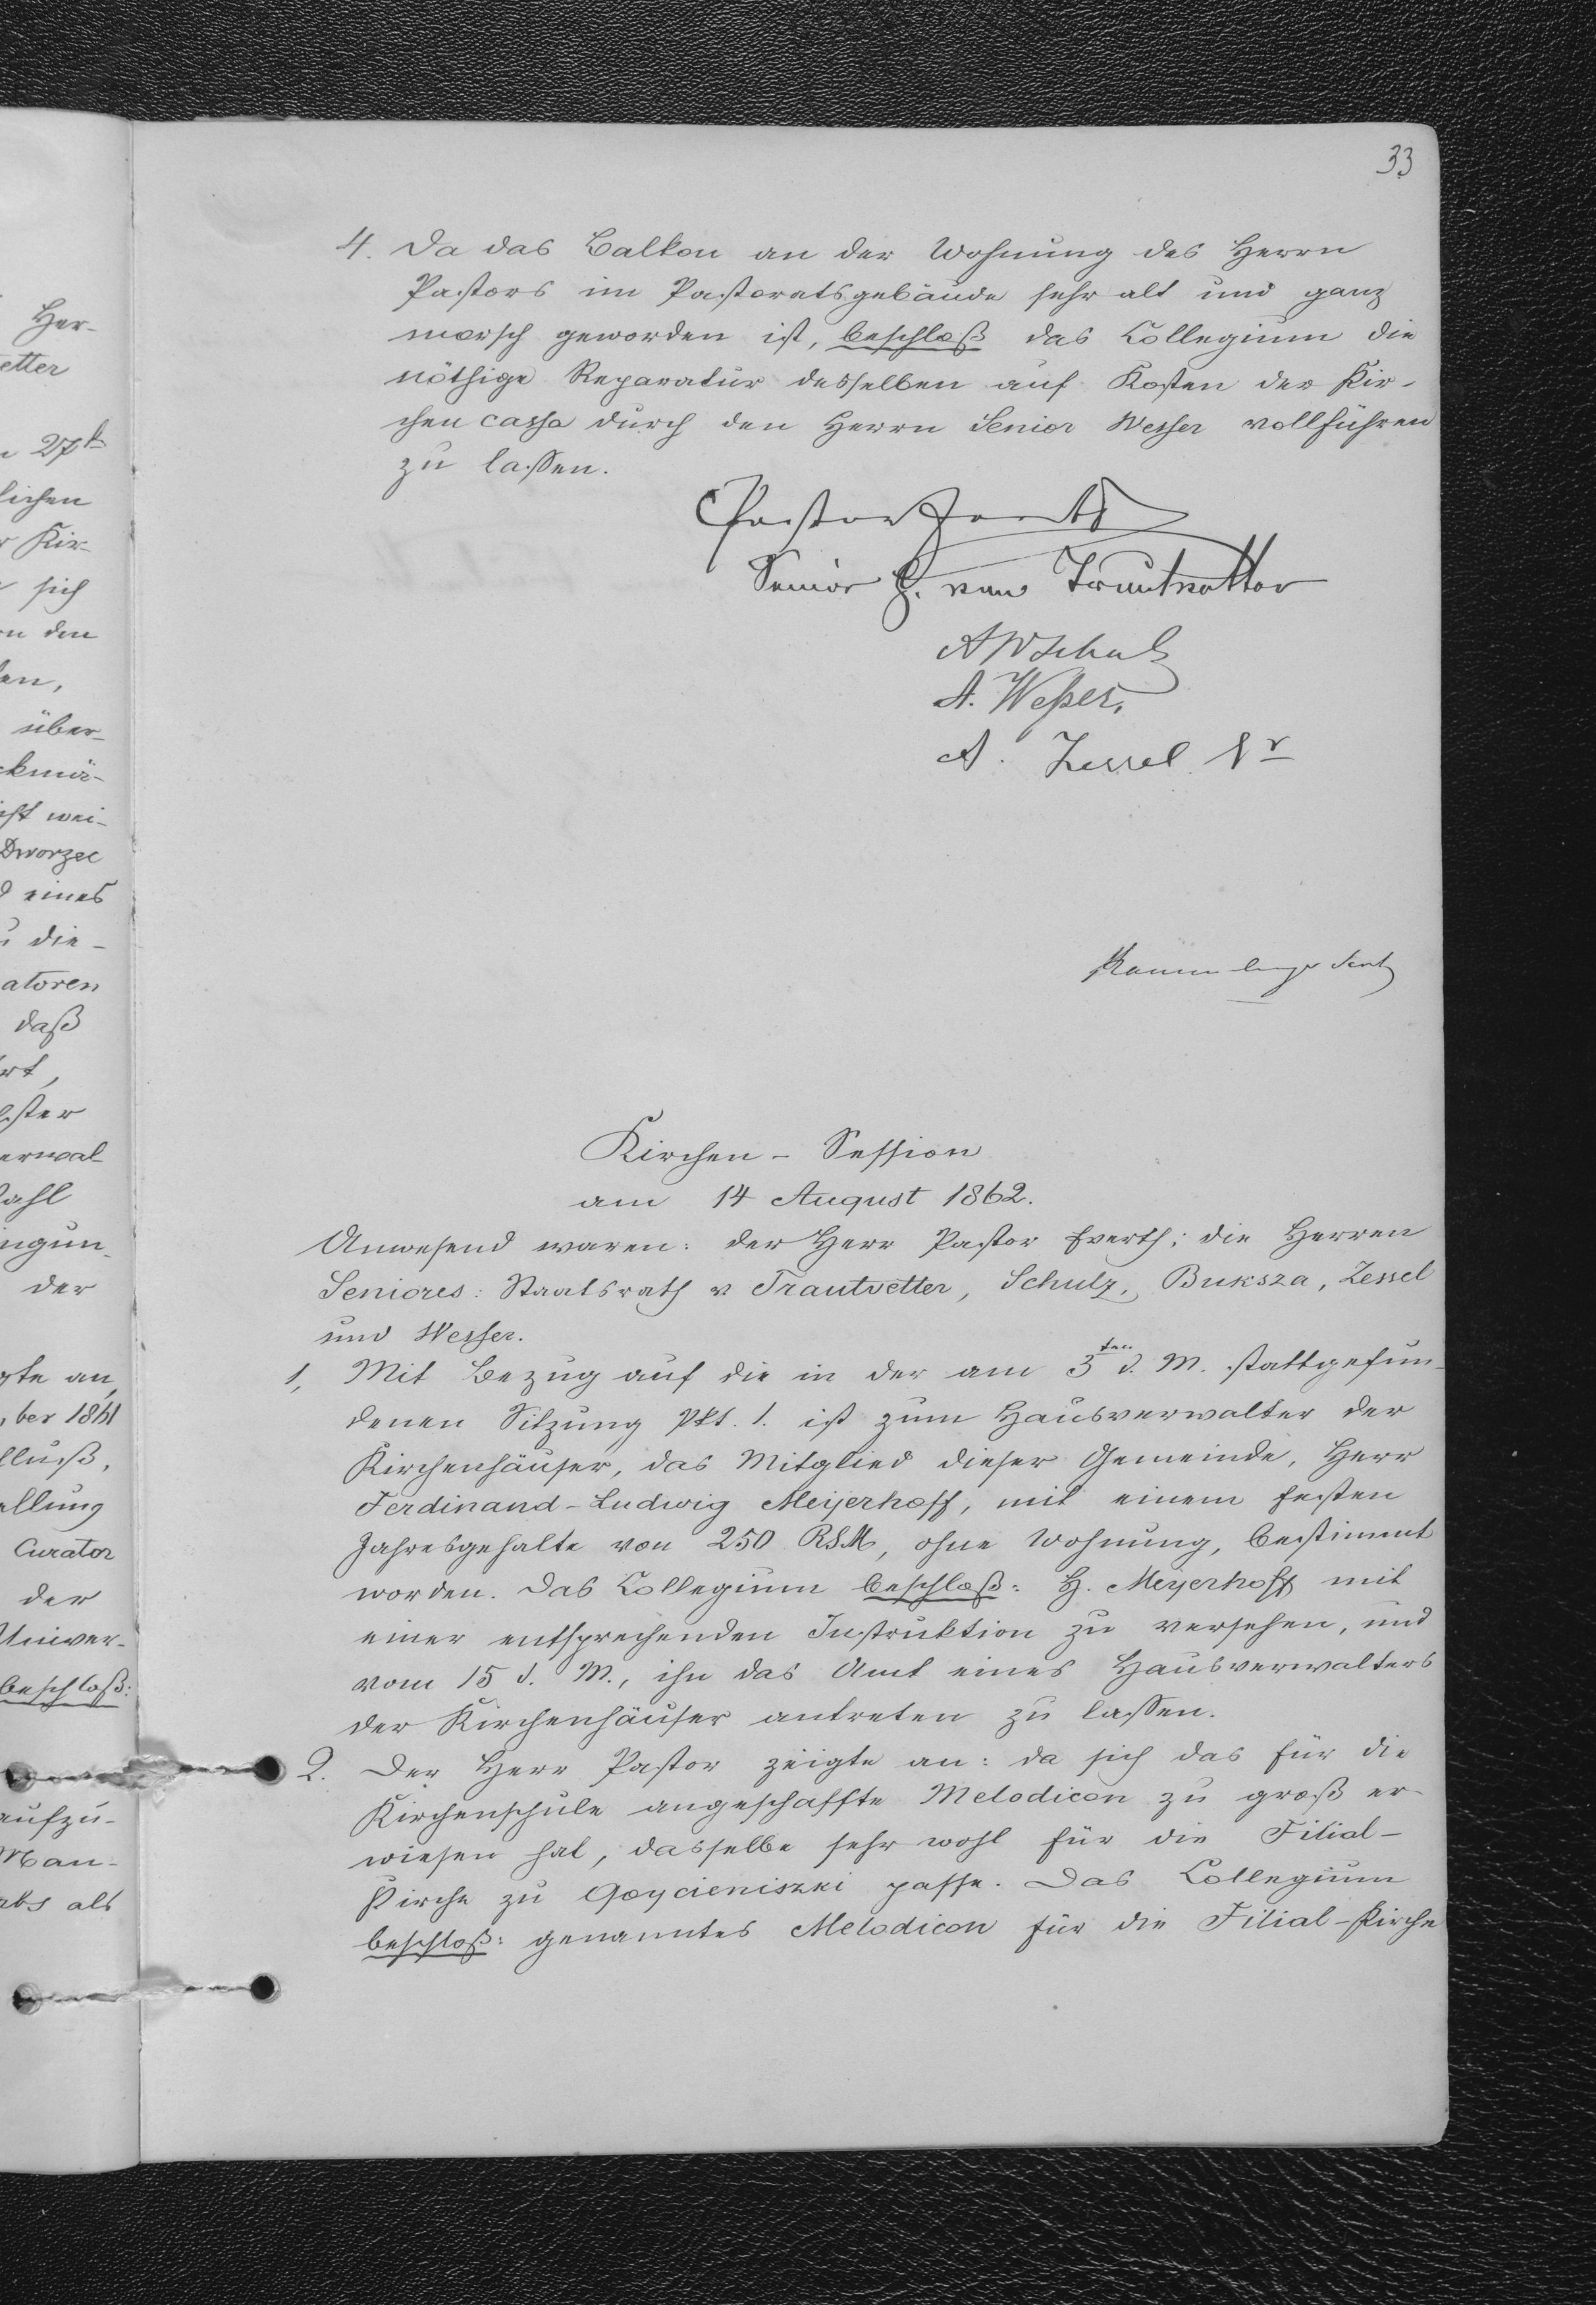 33
4. Da das Balkon an der Wohnung des Herrn
Pastors im Pastoratsgebäude sehr alt und ganz
morsch geworden ist, beschloß das Collegium die
nöthige Reparatur desselben auf Kosten der Kir-
chen cassa durch den Herrn Senior Wesser vollführen
zu lassen.
Pastor Everth
Senior E. von Trautvetter
A W Schulz
A. Weßer,
A. Zessel
Kirchen-Session
am 14 August 1862.
Anwesend waren: der Herr Pastor Everth; die Herren
Seniores: Staatsrath v Trautvetter, Schulz, Buksza, Zessel
und Wesser.
1, Mit Bezug auf die in der am 3ten d. M. stattgefun-
denen Sitzung Pkt. 1. ist zum Hausverwalter der
Kirchenhäuser, das Mitglied dieser Gemeinde, Herr
Ferdinand-Ludwig Meijerhoff, mit einem festen
Jahresgehalte von 250 RSM, ohne Wohnung, bestimmt
worden. Das Collegium beschloß: H. Meyerhoff mit
einer entsprechenden Instruktion zu versehen, und
vom 15 d. M., ihn das Amt eines Hausverwalters
der Kirchenhäuser antreten zu lassen.
2. Der Herr Pastor zeigte an: da sich das für die
Kirchenschule angeschaffte Melodicon zu groß er-
wiesen hat, dasselbe sehr wohl für die Filial-
Kirche zu Goycieniszki passe. Das Collegium
beschloß: genanntes Melodicon für die Filial-Kirche
Her-
etter
27t
lichen
Kir-
sich
den
über-
Dworzec
eines
die-
atoren
daß
der
ber 1861
Curator
der
Univer-
beschloß:
aufzu-
als